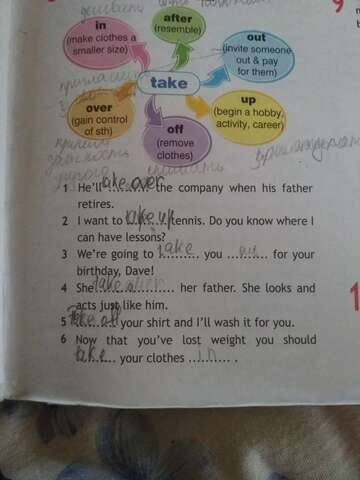 ушивать
after
(resemble)
in
(make clothes a
smaller size)
out
(invite someone
out & pay
for them)
take
over
(gain control
of sth)
up
(begin a hobby,
activity, career)
off
(remove
clothes)
снимать
1 He'll take over the company when his father
retires.
2 I want to take up tennis. Do you know where I
can have lessons?
3 We're going to take you out for your
birthday, Dave!
4 She take after her father. She looks and
acts just like him.
5 Take off your shirt and I'll wash it for you.
6 Now that you've lost weight you should
take your clothes in.
9
1